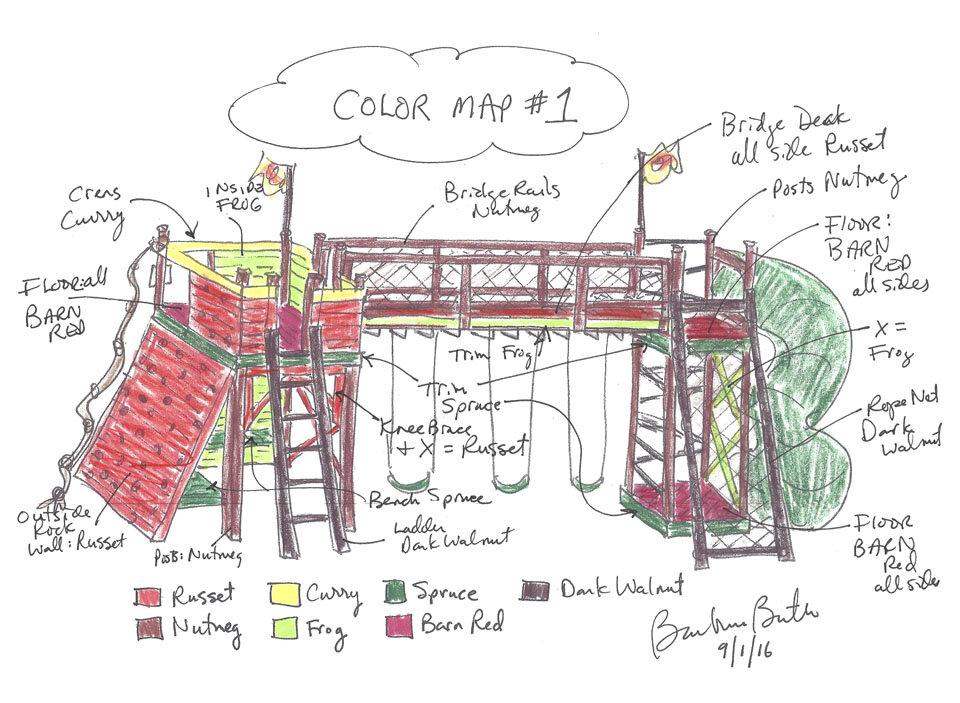 COLOR MAP #1
Bridge Deck
all side Russet
Posts Nutmeg
Crens
Curry
INSIDE
FROG
Bridge Rails
Nutmeg
FLOOR:
BARN
RED
all sides
FLOOR: all
BARN
RED
Trim Frog
X =
Frog
Trim
Spruce
Rope Net
Dark
Walnut
Knee Brace
+ X = Russet
Bench Spruce
Outside
Rock
Wall: Russet
Post: Nutmeg
Ladder
Dark Walnut
FLOOR
BARN
Red
all sides
Russet
Curry
Spruce
Dark Walnut
Nutmeg
Frog
Barn Red
9/1/16